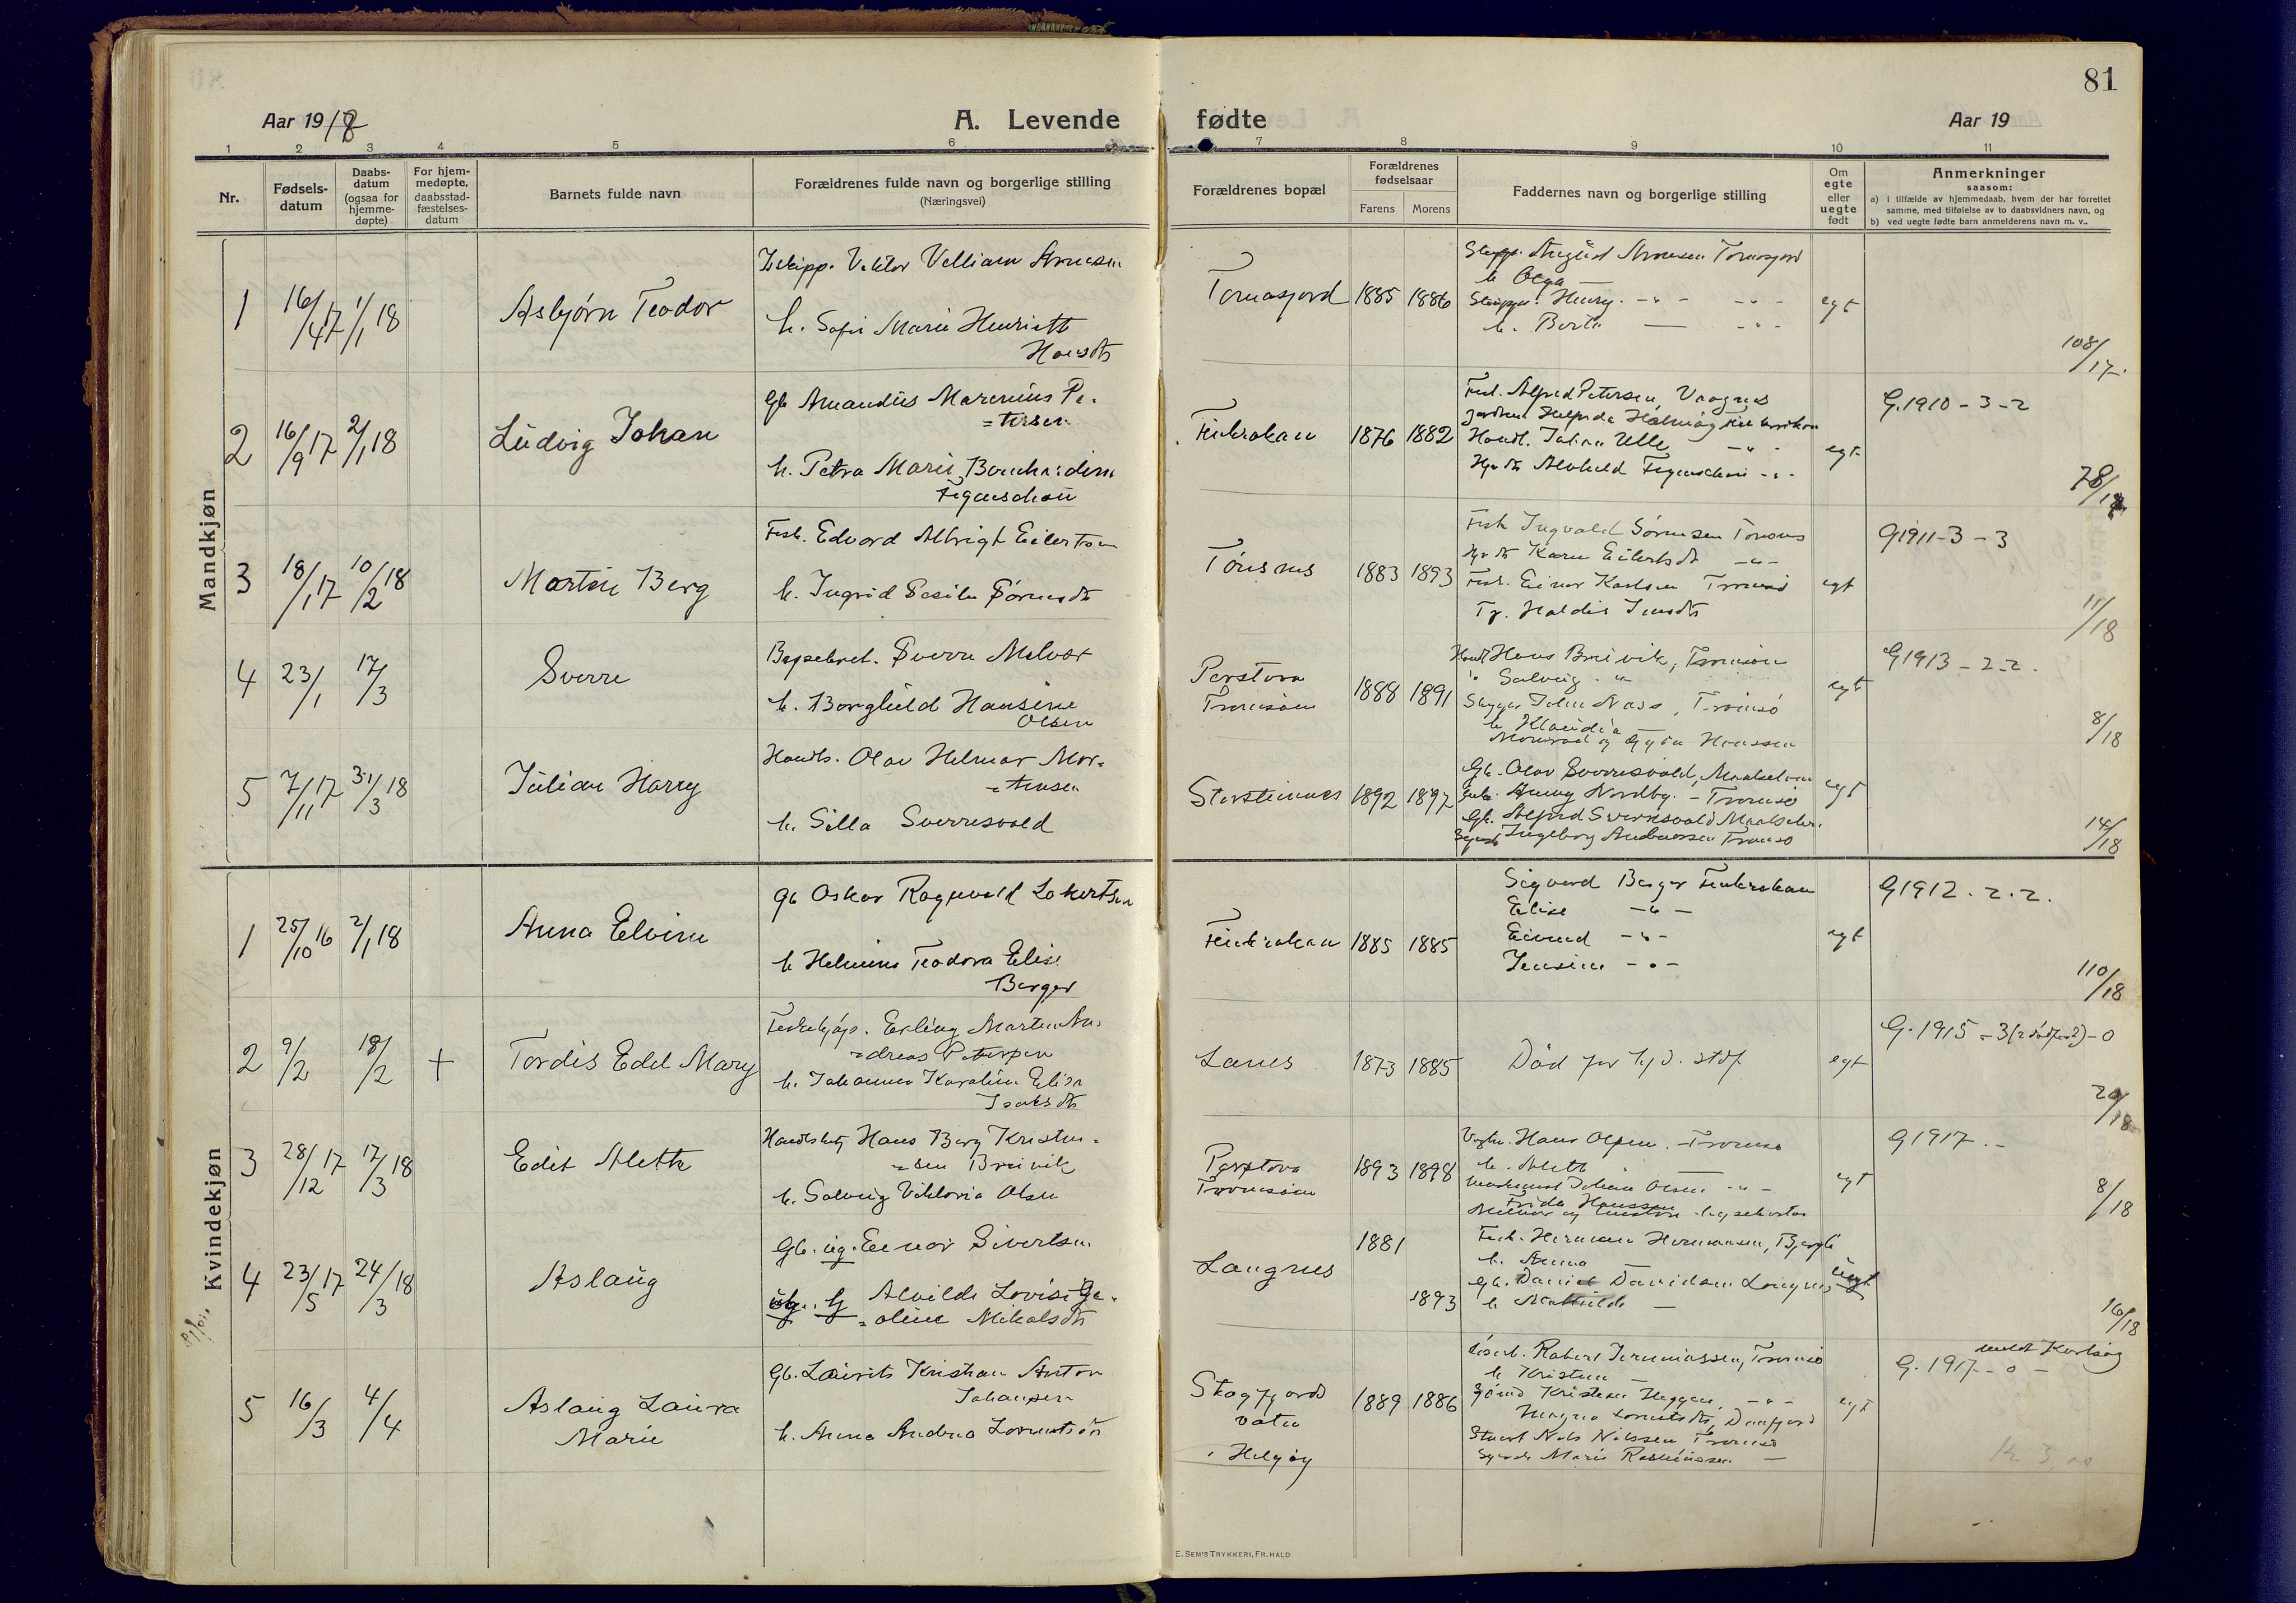 81
Aar 1918
A. Levende
fødte
Aar 19
1 2 3 4 5 6 7 8 9 10 11
Nr.
Fødsels-
datum
Daabs-
datum
(ogsaa for
hjemme-
døpte)
For hjem-
medøpte,
daabsstad-
fæstelses-
datum
Barnets fulde navn
Forældrenes fulde navn og borgerlige stilling
(Næringsvei)
Forældrenes bopæl
Forældrenes
fødselsaar
Farens Morens
Faddernes navn og borgerlige stilling
Om
egte
eller
uegte
født
Anmerkninger
saasom:
a) i tilfælde av hjemmedaab, hvem der har forrettet
samme, med tilføielse av to daabsvidners navn, og
b) ved uegte fødte barn anmelderens navn m. v..
Mandkjøn
1 16/4 17 1/1 18 Asbjørn Teodor
Viktor Velliam Arnesen
h. Sofie Marie Henriette
Hansdtr
1885 1886
August Arnesen
h. Olga —
Henry - " - - " -
h. Berte — - " -
egt
108/17.
2 16/9 17 2/1 18 Ludvig Johan
Gb Amandus Marenius Pe-
=tersen
h. Petra Marie
Figenschou
Finkroken 1876 1882
Alfred Petersen Vaagnes
Johan Ulle - " -
Figenschou - " -
egt
G. 1910 - 3 - 2
78/17
3 18/1 17 10/2 18 Martin Berg
Fisk. Edvard Albrigt Eilertsen
h. Ingrid Sørensdtr
Tønsnes 1883 1893
Fisk Ingvald Sørensen Tønsnes
Karen Eilertsdtr - " -
Fisk. Einar Karlsen Tromsø
Haldis Jensdtr
egt
G 1911 - 3 - 3
11/18
4 23/1 17/3 Sverre
Sverre Melvær
h. Borghild Hansine
Olsen
Tromsøen
1888 1891
Handl Hans Breivik, Tromsøen
" Solveig - " -
John Nass, Tromsø
h. Klaudia
og Gyda Hanssen
egt
G 1913 - 2 - 2.
8/18
5 7/11 17 31/3 18 Julian Harry
Handls. Olav Helmar Mor-
=tensen
h. Silla Sverresvold
Storsteinnes 1892 1897
Gb. Olav Sverresvold, Maalselven
Nordby. - Tromsø
Gb. Alfred Sverresvold Maalselv.
Ingeborg Andreassen Tromsø
egt
14/18
Kvindekjøn
1 25/10 16 2/1 18 Anna Elvine
Gb Oskar Ragnvald
h Helmine Teodora Elise
Berger
Finkroken 1885 1885
Sigvard Berger Finkroken
Elise - " -
Eivind - " -
Jensine - " -
egt
G 1912 - 2 - 2.
110/18
2 9/2 18/2 + Tordis Edel Mary
Erling Martin An-
=dreas Petersen
h. Johanna Karoline Elisa
Isaksdtr
Lanes 1873 1885
Død før hjd. stdf
egt
G. 1915 - 3 (2 dødfødt) - 0
20/18
3 28/12 17 17/3 18 Edit Alette
Hans Berg Kristen-
=sen Breivik
h. Solveig Viktoria Olsen
Tromsøen
1893 1898
Hans Olsen. Tromsø
h. Alette
Johan Olsen - " -
Frida Hanssen
egt
G 1917 . -
8/18
4 23/5 17 24/3 18 Aslaug
Gb. ug. Einar Sivertsen
Alvilde Lovise Ge-
=oline Mikalsdtr
Langnes
1881
1893
Fisk. Herman Hermansen,
h. Anna —
Gb. Daniel Davidsen Langnes
h Mathilde —
uegt
16/18
5 16/3 4/4 Aslaug Laura
Marie
Gb. Laurits Kristian Anton
Johansen
h. Anna Andrea Lorentsdtr
Skogfjord
vatn
Helgøy
1889 1886
Robert Jeremiassen, Tromsø
h Kristine —
Kristian Heggen, - " -
Magna Lorentsdtr, Daafjord
Nils Nilssen Tromsø
Marie Rasmussen —
egt
meldt Karlsøy
G. 1917 - 0 -
kr 3,00
E. SEM'S TRYKKERI, FR.HALD